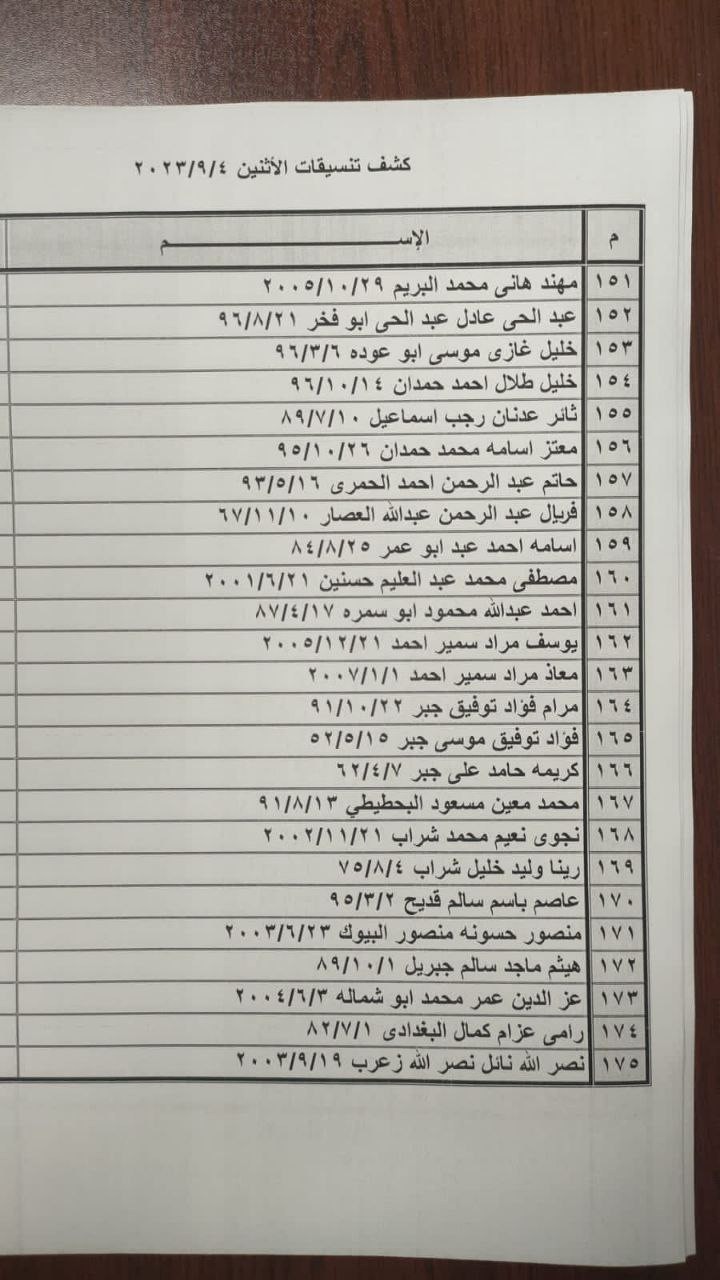 كشف تنسيقات الأثنين ٢٠٢٣/٩/٤
م الإســـــــــــــــــــم
١٥١ مهند هانى محمد البريم ٢٠٠٥/١٠/٢٩
١٥٢ عبد الحى عادل عبد الحى ابو فخر ٩٦/٨/٢١
١٥٣ خليل غازى موسى ابو عوده ٩٦/٣/٦
١٥٤ خليل طلال احمد حمدان ٩٦/١٠/١٤
١٥٥ ثائر عدنان رجب اسماعيل ٨٩/٧/١٠
١٥٦ معتز اسامه محمد حمدان ٩٥/١٠/٢٦
١٥٧ حاتم عبد الرحمن احمد الحمرى ٩٣/٥/١٦
١٥٨ فريال عبد الرحمن عبدالله العصار ٦٧/١١/١٠
١٥٩ اسامه احمد عبد ابو عمر ٨٤/٨/٢٥
١٦٠ مصطفى محمد عبد العليم حسنين ٢٠٠١/٦/٢١
١٦١ احمد عبدالله محمود ابو سمره ٨٧/٤/١٧
١٦٢ يوسف مراد سمير احمد ٢٠٠٥/١٢/٢١
١٦٣ معاذ مراد سمير احمد ٢٠٠٧/١/١
١٦٤ مرام فؤاد توفيق جبر ٩١/١٠/٢٢
١٦٥ فؤاد توفيق موسى جبر ٥٢/٥/١٥
١٦٦ كريمه حامد على جبر ٦٢/٤/٧
١٦٧ محمد معين مسعود البحطيطي ٩١/٨/١٣
١٦٨ نجوى نعيم محمد شراب ٢٠٠٢/١١/٢١
١٦٩ رينا وليد خليل شراب ٧٥/٨/٤
١٧٠ عاصم باسم سالم قديح ٩٥/٣/٢
١٧١ منصور حسونه منصور البيوك ٢٠٠٣/٦/٢٣
١٧٢ هيثم ماجد سالم جبريل ٨٩/١٠/١
١٧٣ عز الدين عمر محمد ابو شماله ٢٠٠٤/٦/٣
١٧٤ رامى عزام كمال البغدادى ٨٢/٧/١
١٧٥ نصر الله نائل نصر الله زعرب ٢٠٠٣/٩/١٩